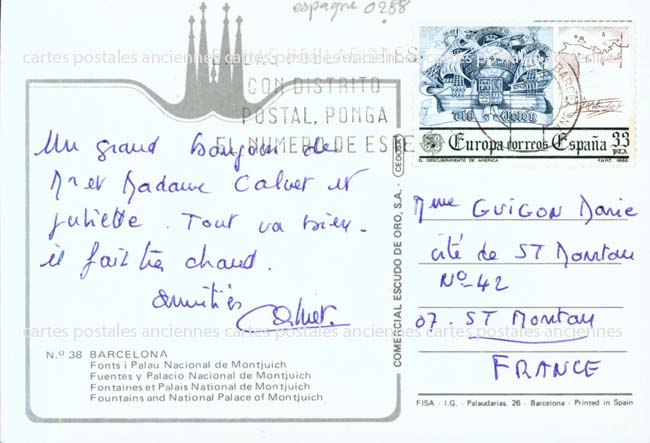 espagne 0288
cartes postales anciennes
cartes postales anciennes
POBLACIONES
CON DISTRITO
POSTAL, PONGA
EL NUMERO DE ESTE
Europa correos España 33
PTA
EL DESCUBRIMIENTO DE AMERICA F.N.M.T. 1982
Un grand bonjour de
Mr et Madame Calvet et
Juliette. Tout va bien.
il fait très chaud.
amitiés
Calvet.
cartes postales anciennes
cartes postales anciennes
N.º 38 BARCELONA
Fonts i Palau Nacional de Montjuich
Fuentes y Palacio Nacional de Montjuich
Fontaines et Palais National de Montjuich
Fountains and National Palace of Montjuich
COMERCIAL ESCUDO DE ORO, S.A. - CEDOSA
Mme GUIGON Marie
cité de ST Montan
Nº 42
07. ST Montan
FRANCE
FISA - I.G. - Palaudarias, 26 - Barcelona - Printed in Spain